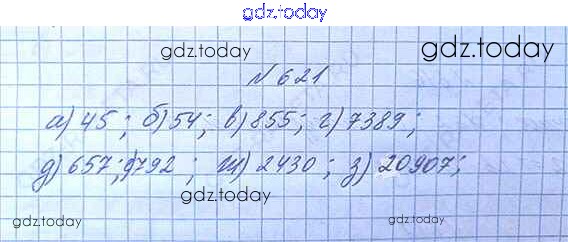 gdz.today
gdz.today gdz.today
№ 621
а) 45; б) 54; в) 855; г) 7389;
д) 657; е) 792; ж) 2430; з) 20907;
gdz.today
gdz.today gdz.today